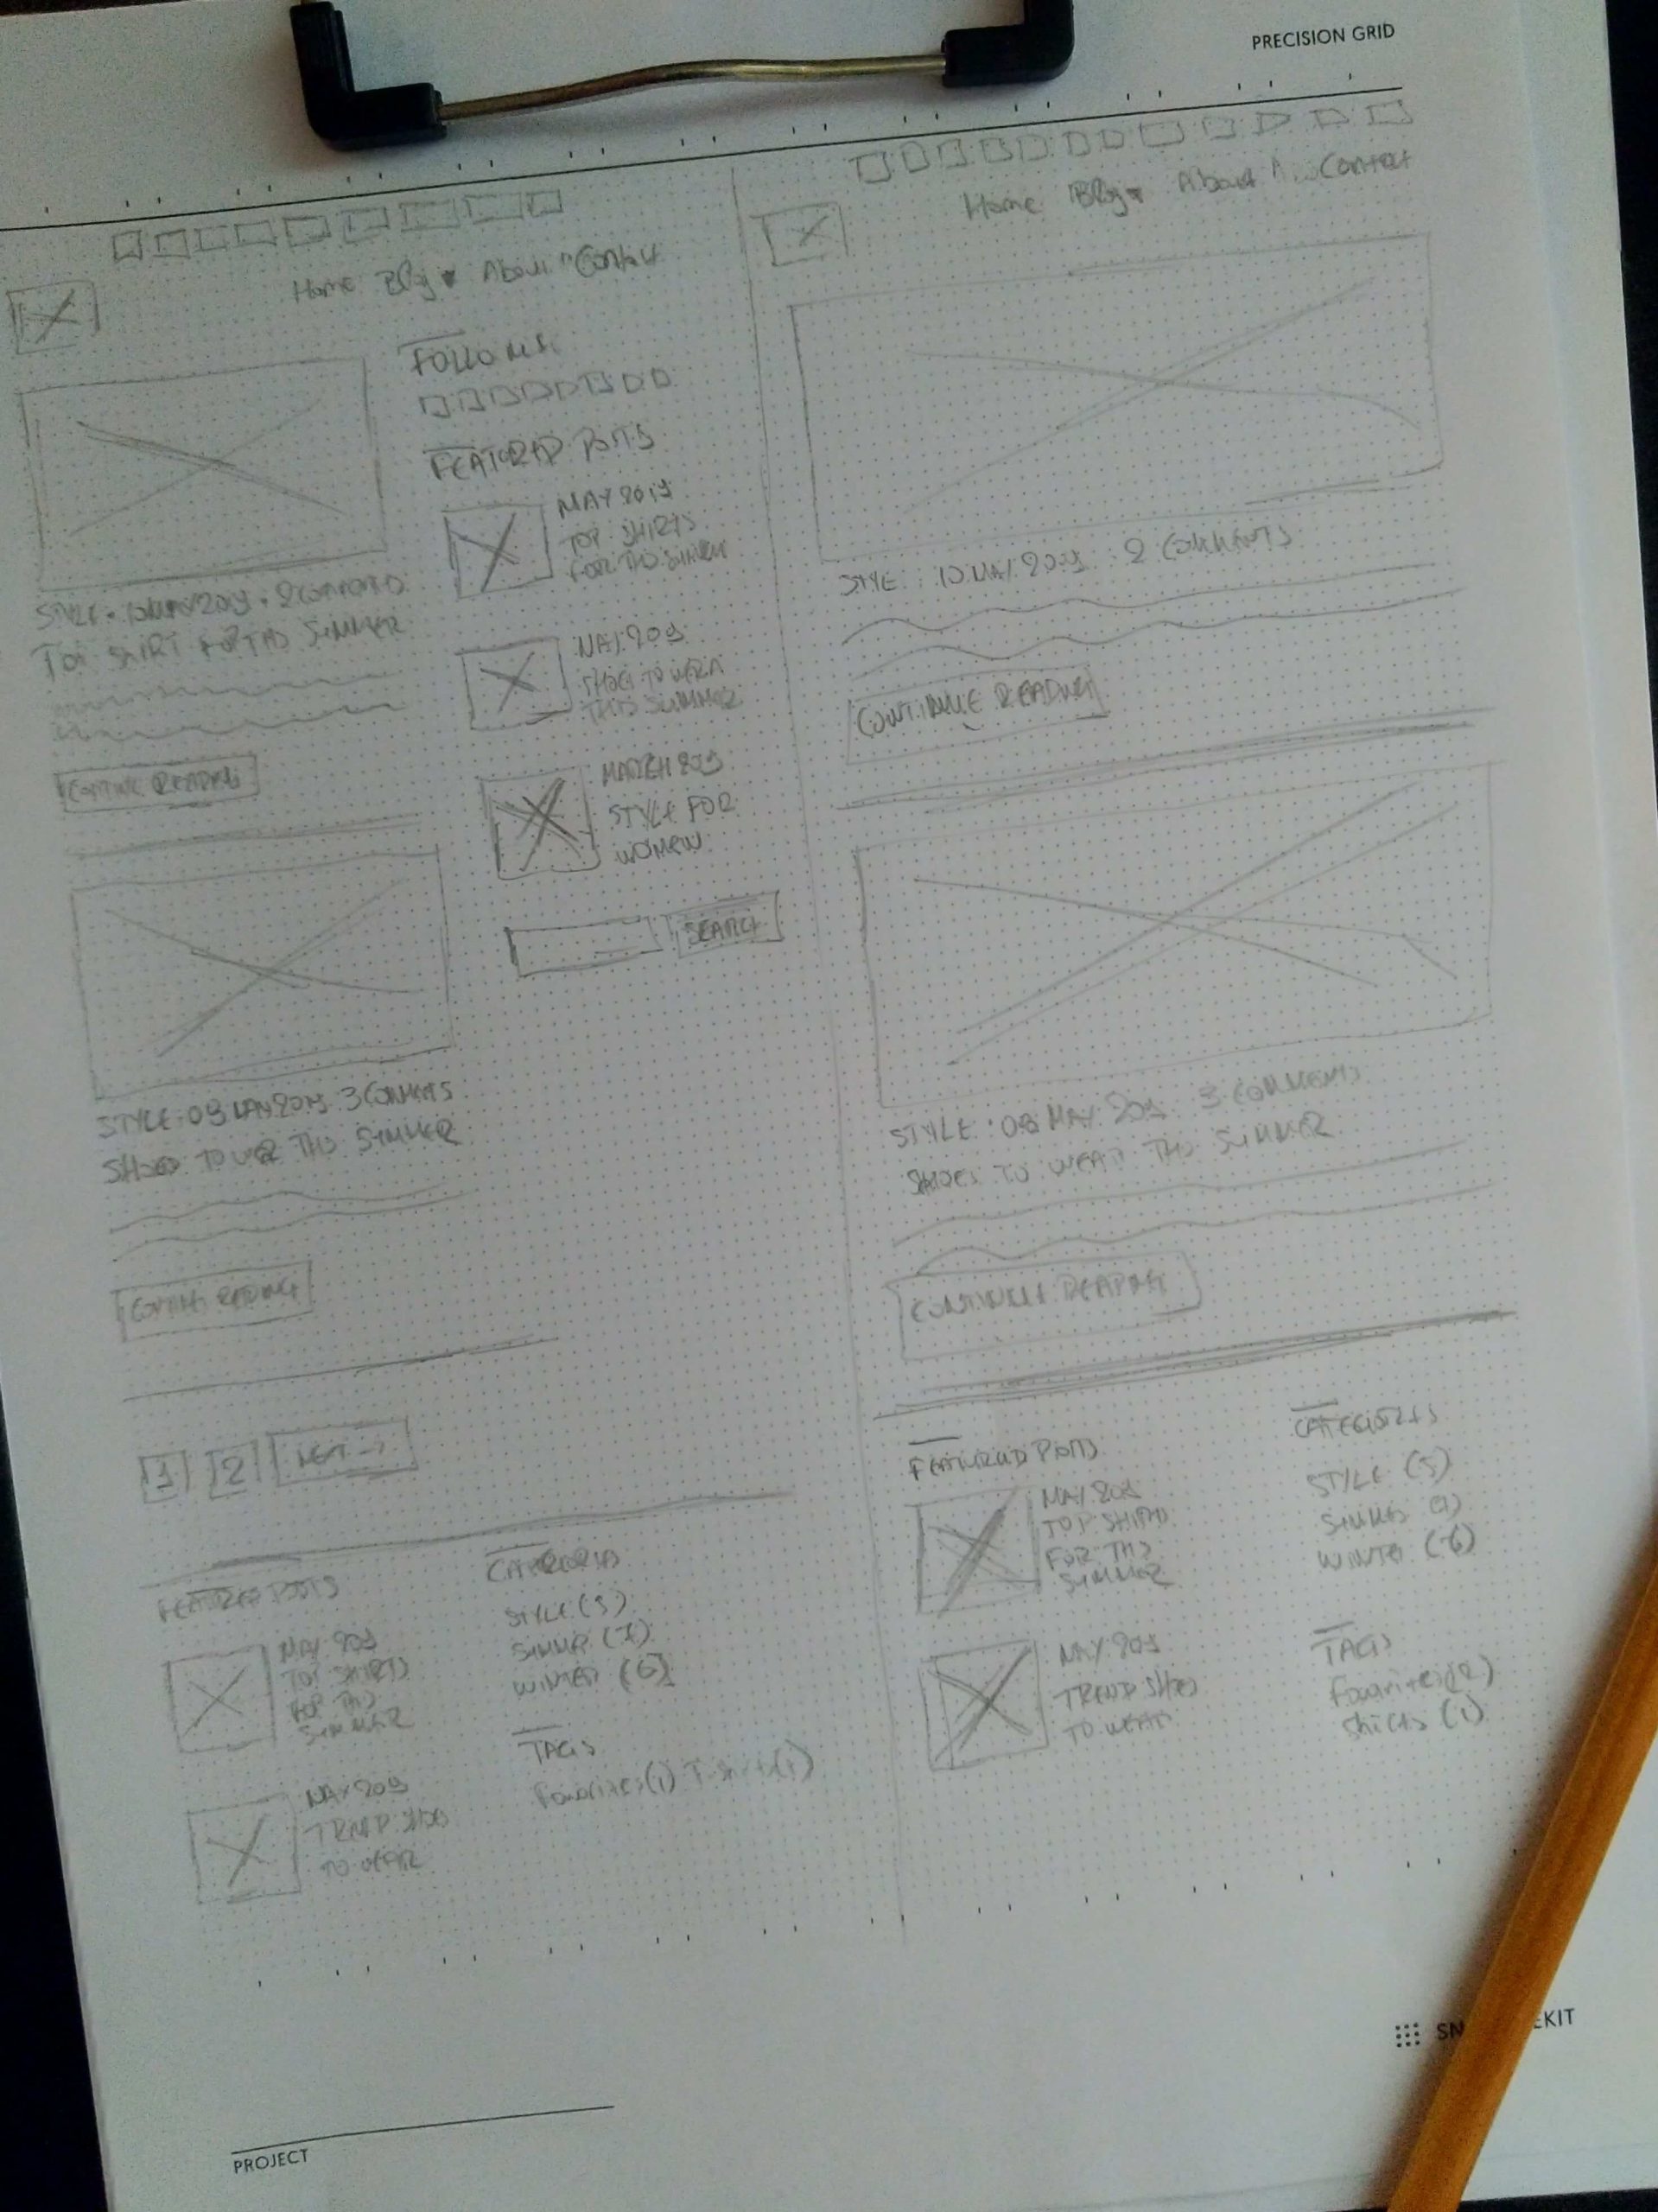 PRECISION GRID
Home Blog About Contact
FOLLOW US
FEATURED POSTS
MAY 2019
TOP SHIRTS
FOR THIS SUMMER
STYLE . 10 MAY 2019 . 2 COMMENTS
TOP SHIRT FOR THIS SUMMER
MAY 2019
SHOES TO WEAR
THIS SUMMER
CONTINUE READING
MARCH 2019
STYLE FOR
WOMEN
SEARCH
STYLE . 09 MAY 2019 . 3 COMMENTS
SHOES TO WEAR THIS SUMMER
CONTINUE READING
1 2 NEXT →
FEATURED POSTS
MAY 2019
TOP SHIRTS
FOR THIS
SUMMER
MAY 2019
TREND SHOES
TO WEAR
CATEGORIES
STYLE (5)
SUMMER (7)
WINTER (6)
TAGS
Favorites (1) T-shirts (1)
Home Blog About Contact
STYLE . 10 MAY 2019 . 2 COMMENTS
CONTINUE READING
STYLE . 09 MAY 2019 3 COMMENTS
SHOES TO WEAR THIS SUMMER
CONTINUE READING
FEATURED POSTS
MAY 2019
TOP SHIRTS
FOR THIS
SUMMER
MAY 2019
TREND SHOES
TO WEAR
CATEGORIES
STYLE (5)
WINTER (6)
TAGS
Favorites (2)
Shirts (1)
PROJECT